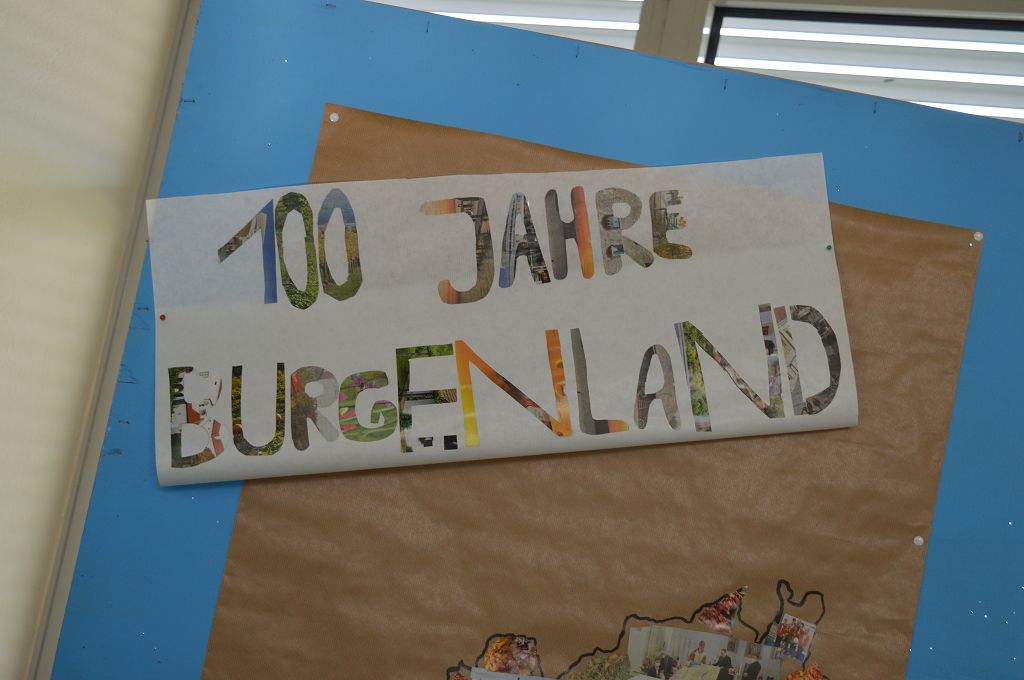 100 JAHRE
BURGENLAND